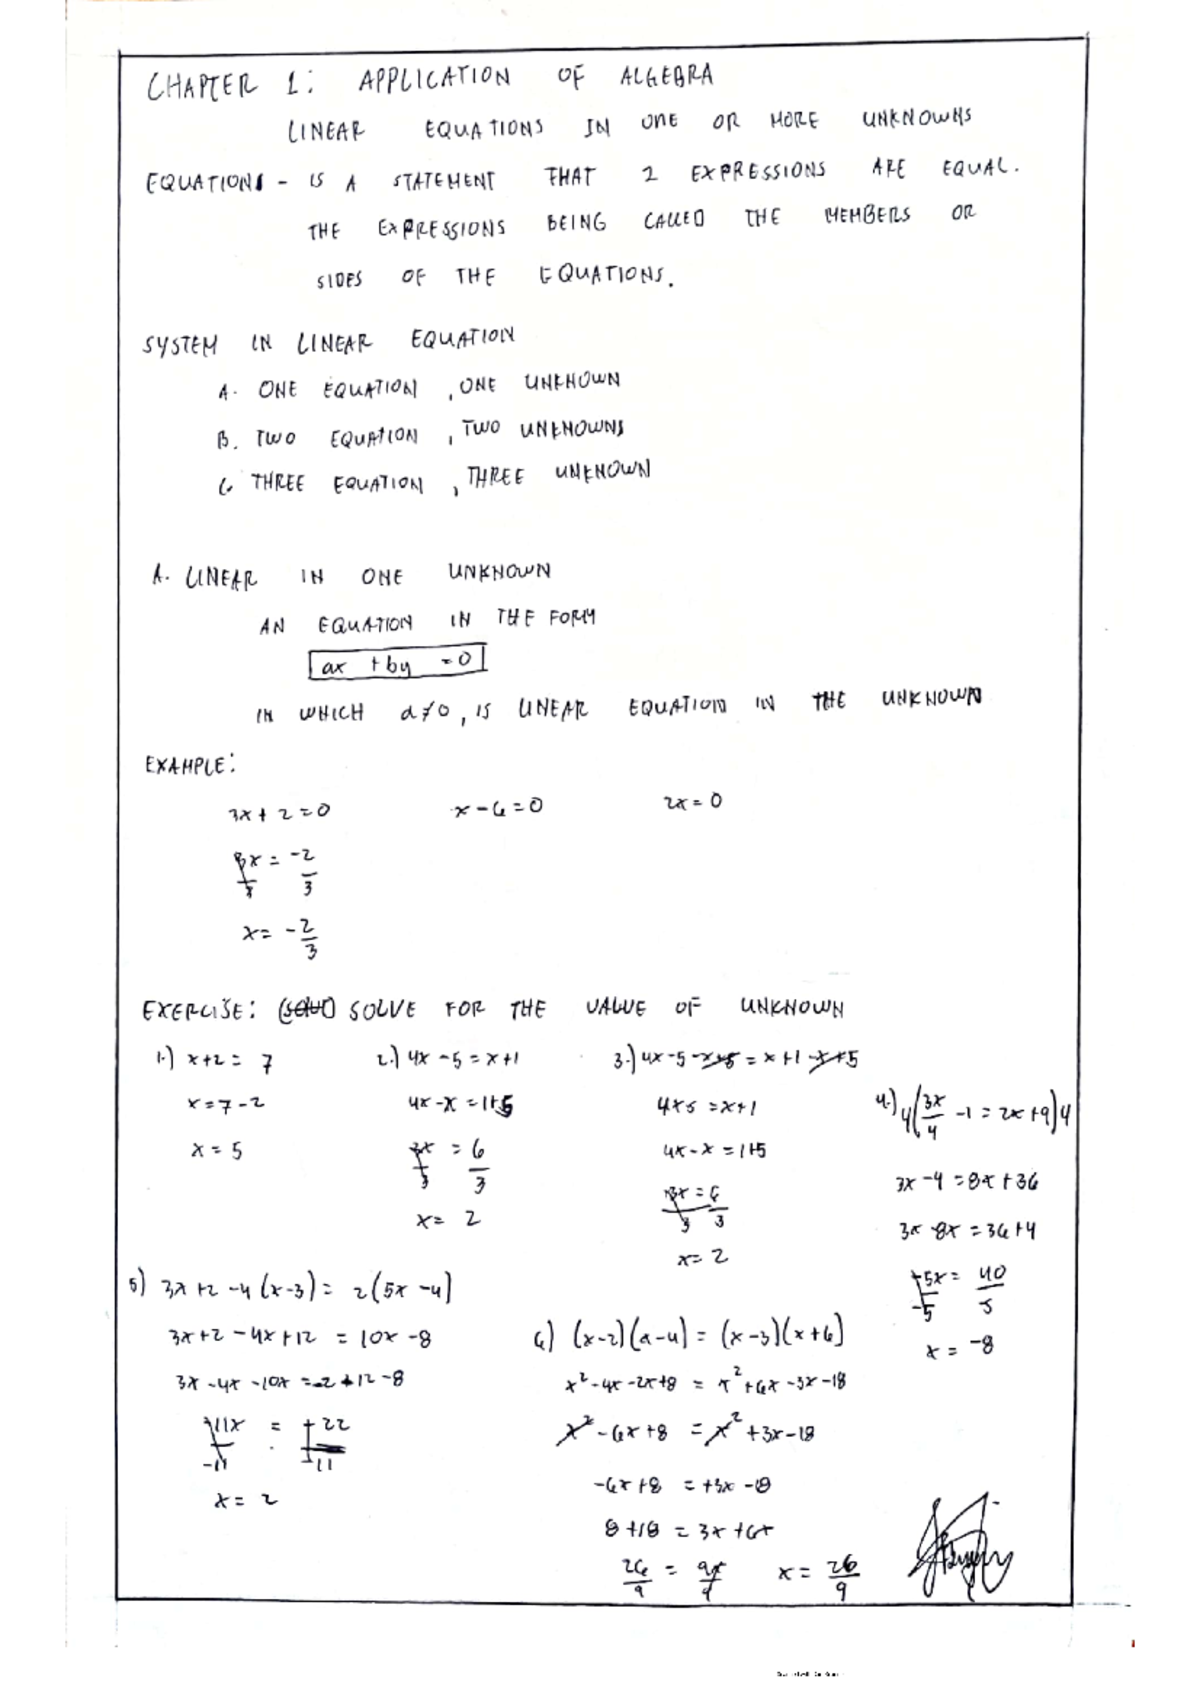 CHAPTER 1: APPLICATION OF ALGEBRA
LINEAR EQUATIONS IN ONE OR MORE UNKNOWNS
EQUATIONS - IS A STATEMENT THAT 2 EXPRESSIONS ARE EQUAL.
THE EXPRESSIONS BEING CALLED THE MEMBERS OR
SIDES OF THE EQUATIONS.
SYSTEM IN LINEAR EQUATION
A. ONE EQUATION, ONE UNKNOWN
B. TWO EQUATION, TWO UNKNOWNS
C. THREE EQUATION, THREE UNKNOWN
A. LINEAR IN ONE UNKNOWN
AN EQUATION IN THE FORM
ax + by = 0
IN WHICH a≠0, IS LINEAR EQUATION IN THE UNKNOWN
EXAMPLE:
3x + 2 = 0 x - 6 = 0 2x = 0
3x/3 = -2/3
x = -2/3
EXERCISE: SOLVE FOR THE VALUE OF UNKNOWN
1.) x+2 = 7
x = 7-2
x = 5
2.) 4x - 5 = x+1
4x - x = 1+5
3x/3 = 6/3
x = 2
3.) 4x - 5 - x+5 = x+1 - x+5
4x5 = x+1
4x - x = 1+5
3x/3 = 6/3
x = 2
4.) 4(3x/4 - 1 = 2x + 9)4
3x - 4 = 8x + 36
3x - 8x = 36+4
-5x/-5 = 40/5
x = -8
5) 3x + 2 - 4(x-3) = 2(5x - 4)
3x + 2 - 4x + 12 = 10x - 8
3x - 4x - 10x = -2 + 12 - 8
-11x/-11 = +22/-11
x = 2
6) (x-2)(x-4) = (x-3)(x+6)
x² - 4x - 2x + 8 = x² + 6x - 3x - 18
x² - 6x + 8 = x² + 3x - 18
-6x + 8 = +3x - 18
8 + 18 = 3x + 6x
26/9 = 9x/9 x = 26/9